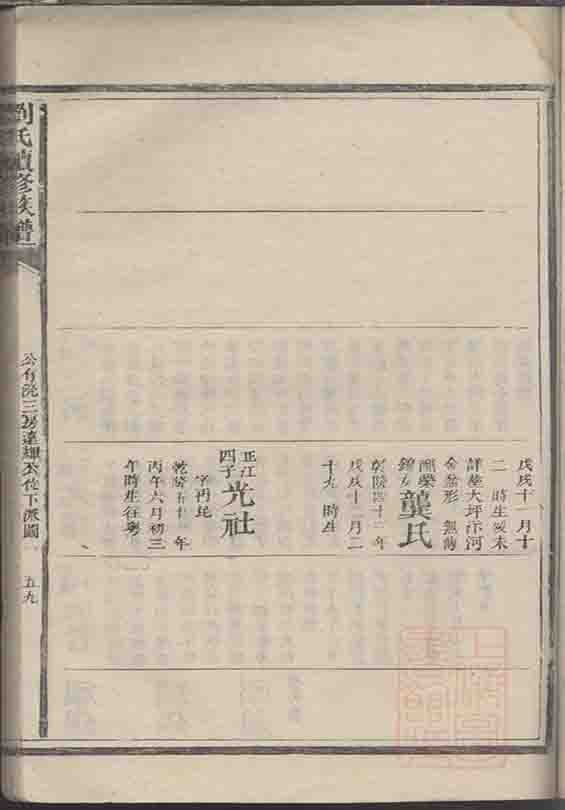 戊戌十一月十
二 時生歿未
詳塟大坪汴河
金盆形 無嗣
龔氏
乾隆四十三年
戊戌十二月二
十九 時生
正江
四子
光社
字丙
乾隆五十一年
丙午六月初三
午時生往粵
劉氏續修族譜
公有浣三房達 公位下派圖
五九